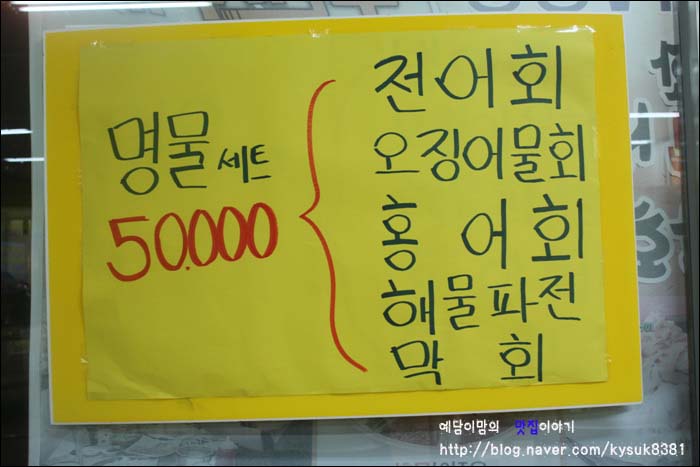 명물세트
50.000
전어회
오징어물회
홍어회
해물파전
막회
예담이맘의 맛집이야기
http://blog.naver.com/kysuk8381